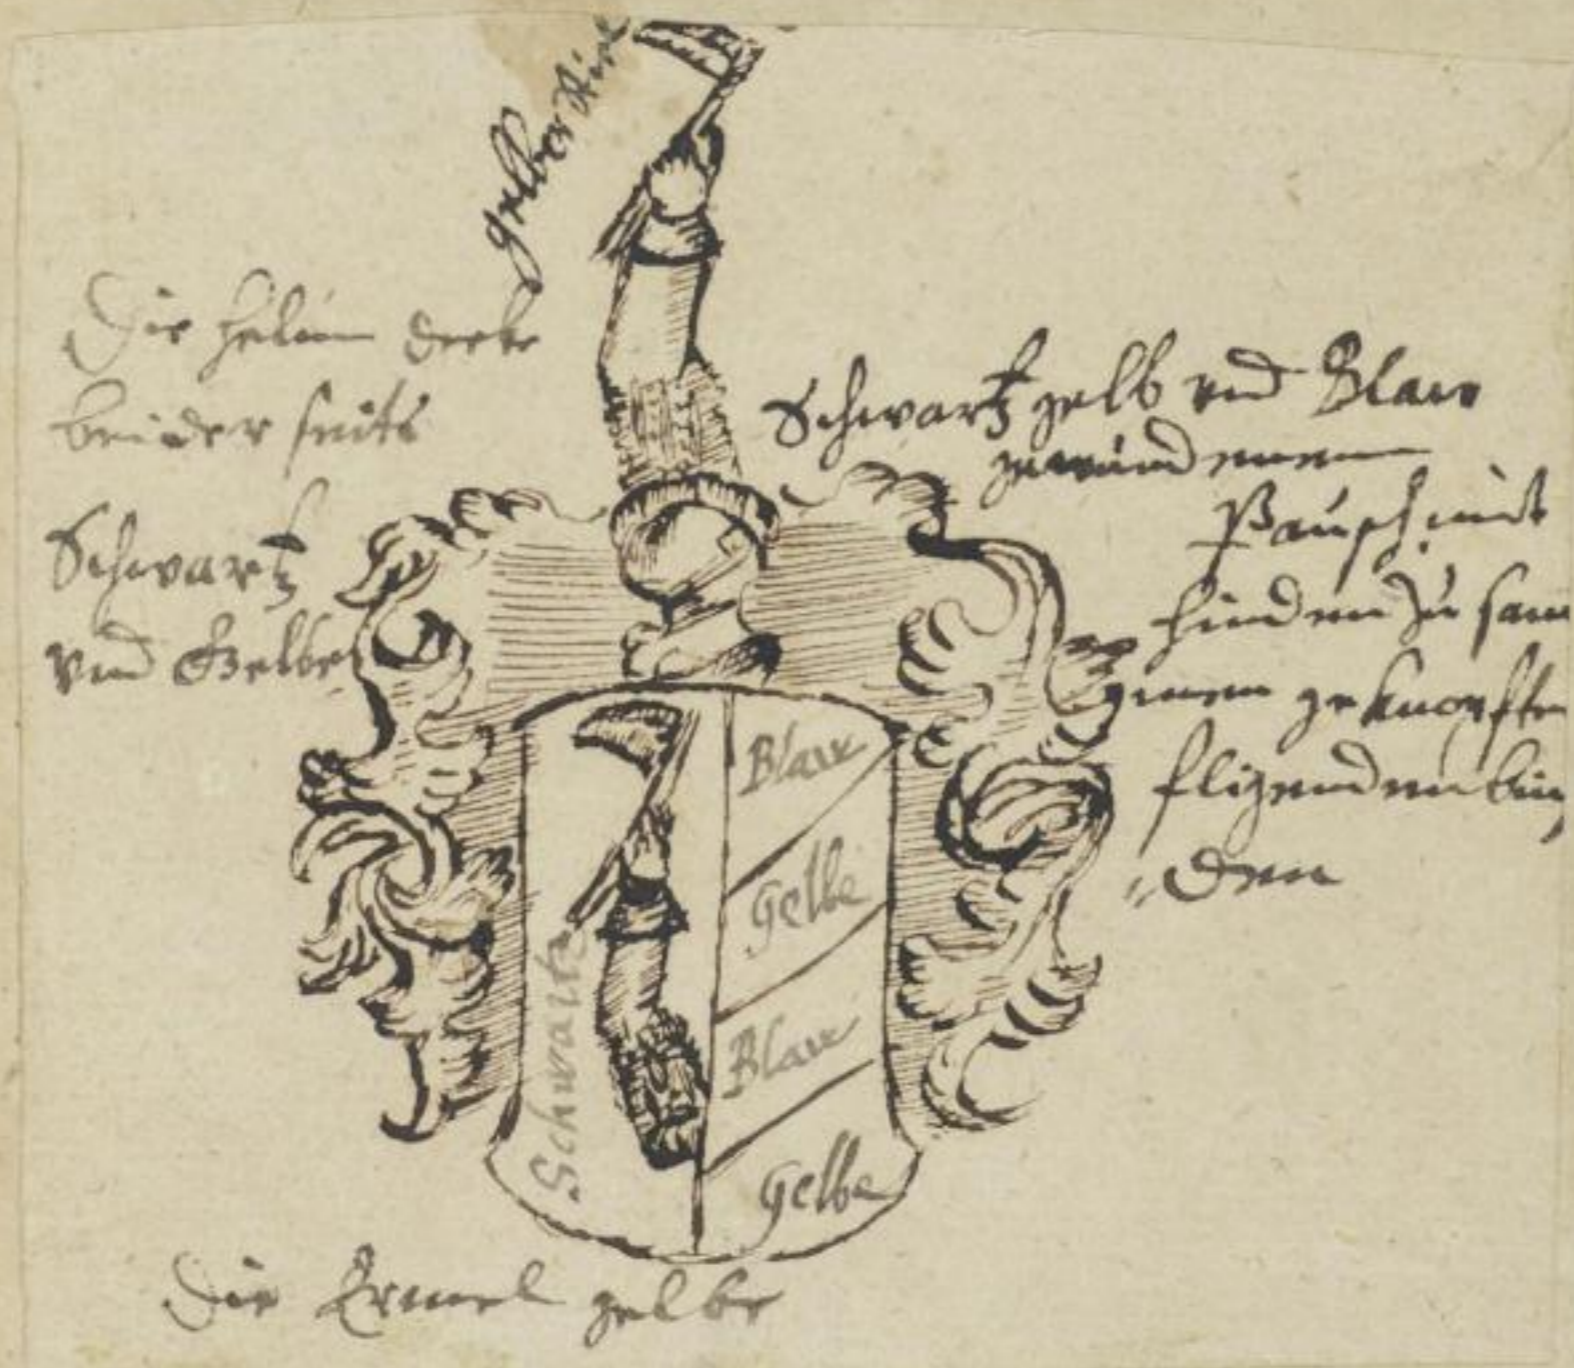 gelber Stiel
Die Helm Decke
beider seits
Schwartz
vnd Gelbe
Schwartz gelb vnd Blaw
gewundenem
Pausch mit
hinden zu sam
geknopften
fligenden bin
den
Blaw
Gelbe
Blaw
Gelbe
Schwartz
Die Ermel gelbe